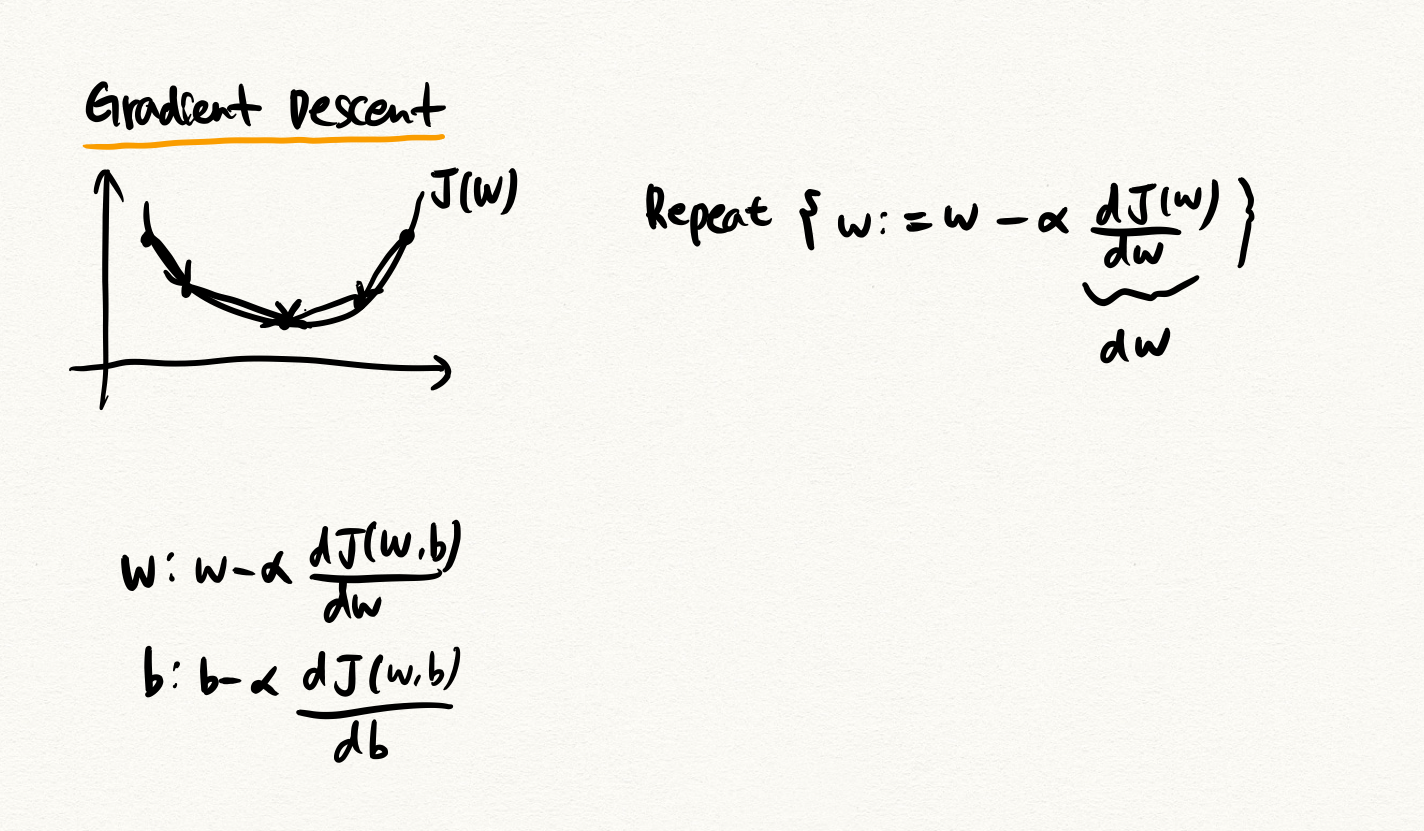 Gradient Descent
J(w)
Repeat { w := w - α dJ(w)/dw }
dw
w: w - α dJ(w,b)/dw
b: b - α dJ(w,b)/db